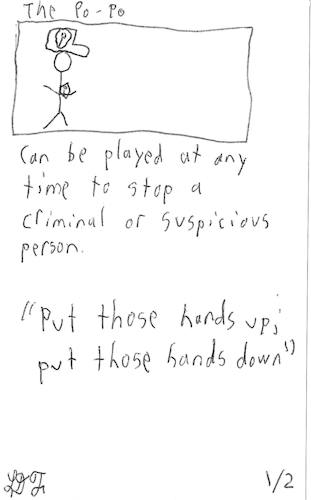 The Po-Po
P
Can be played at any
time to stop a
criminal or suspicious
person.
"Put those hands up;
put those hands down"
1/2